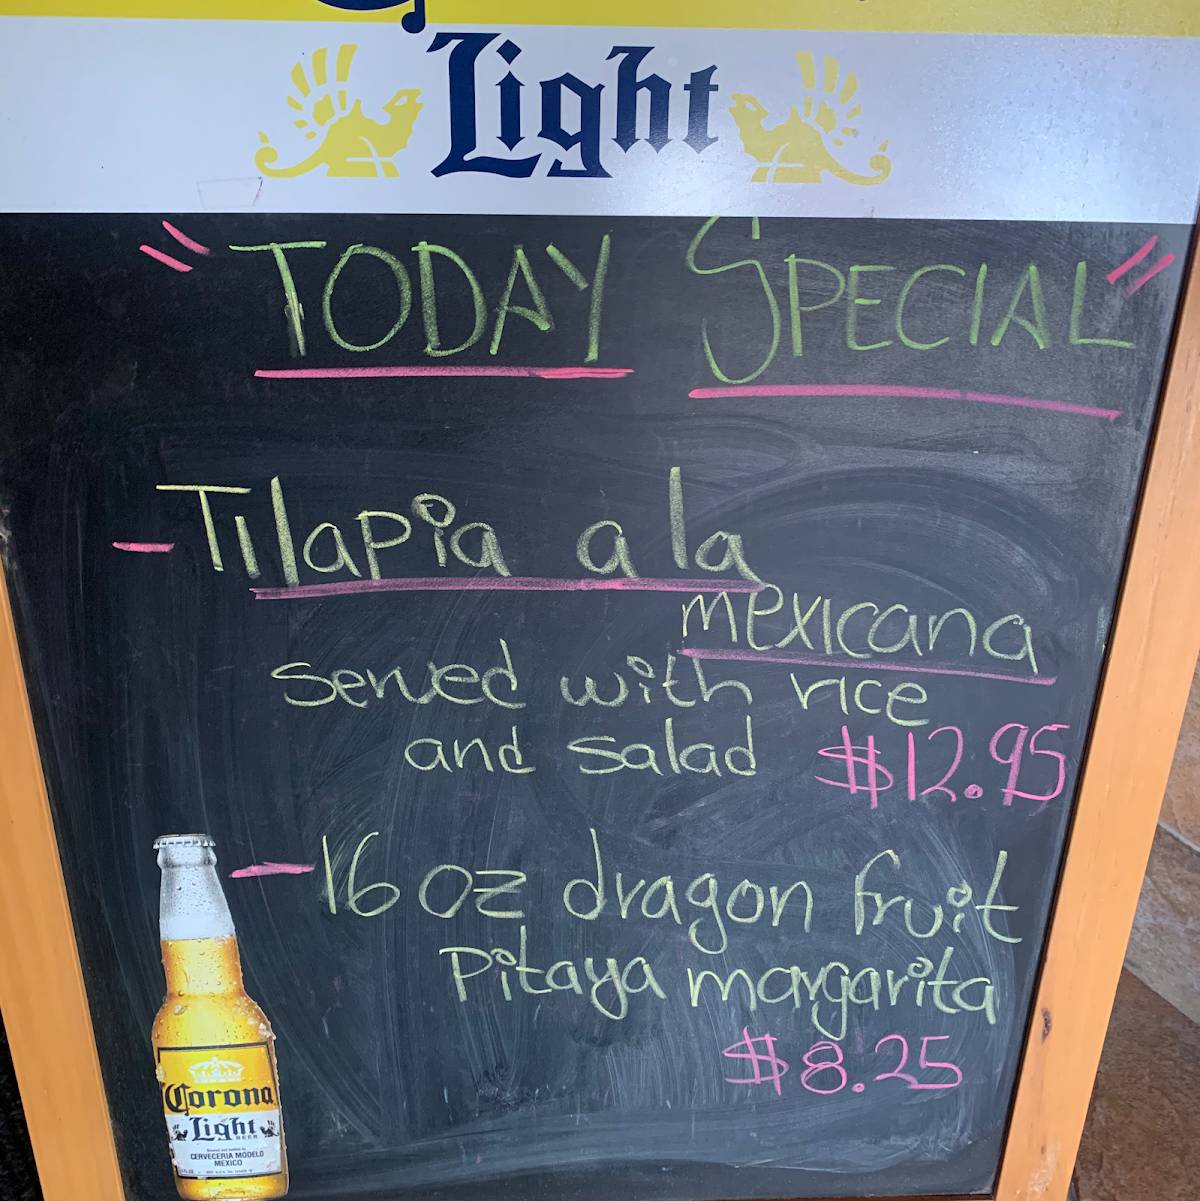 Light
"TODAY SPECIAL"
- Tilapia a la
mexicana
served with rice
and salad $12.95
- 16 oz dragon fruit
Pitaya margarita
$8.25
Corona
Light
BEER
CERVECERIA MODELO
MEXICO